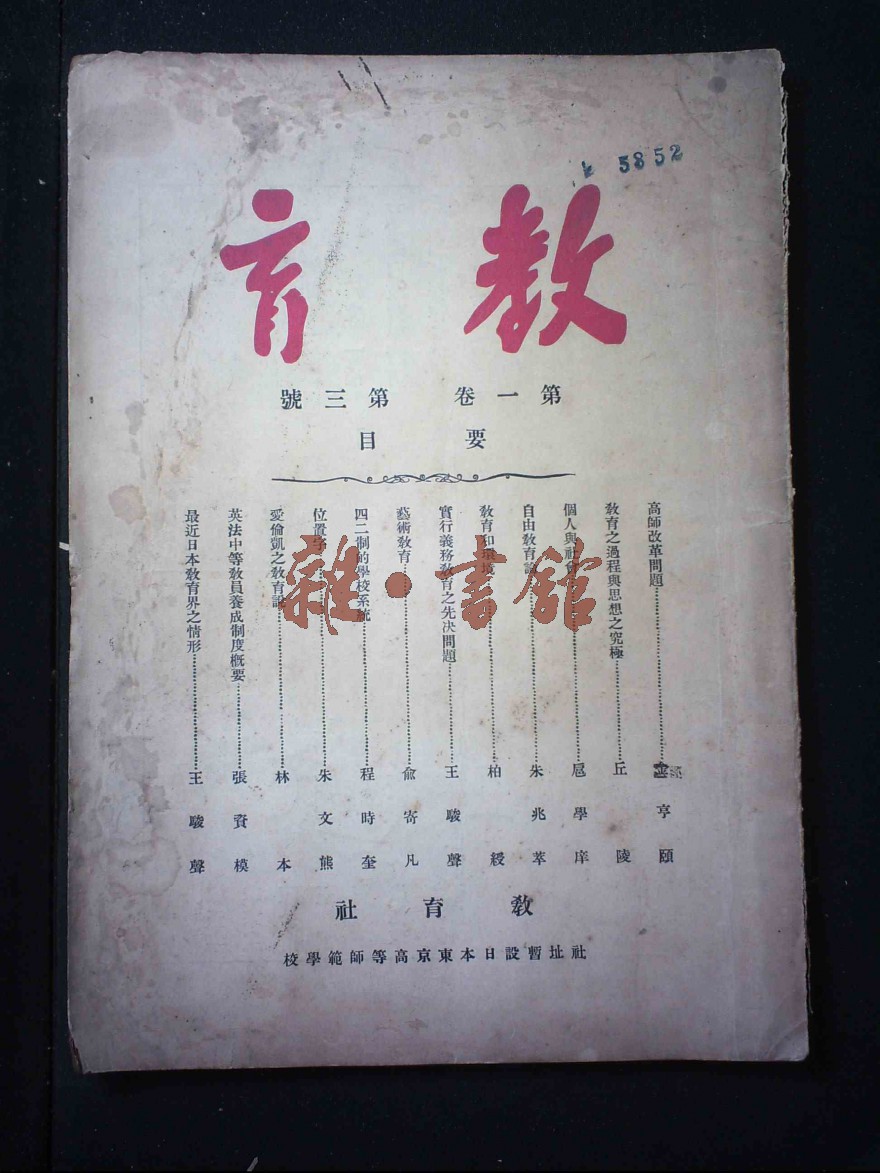 5852
教育
第一卷 第三號
要目
高師改革問題 亨頤
教育之過程與思想之究極 丘陵
個人與社會 扈學庠
自由教育論 朱兆萃
教育和環境 柏綬
實行義務教育之先決問題 王駿聲
藝術教育 俞寄凡
四二制的學校系統 程時奎
位置 朱文熊
愛倫凱之教育說 林本
英法中等教員養成制度概要 張資模
最近日本教育界之情形 王駿聲
教育社
社址暫設日本東京高等師範學校
雜·書館